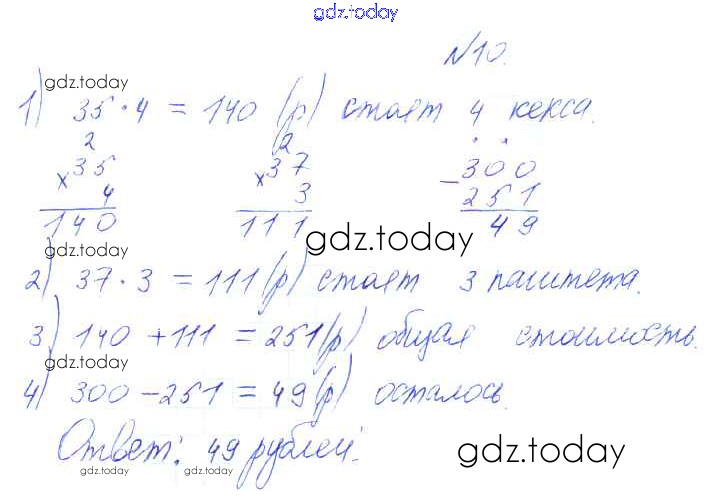 gdz.today
№10.
gdz.today
1) 35 · 4 = 140 (р) стоят 4 кекса.
2 2 . .
×35 ×37 −300
4 3 251
140 111 49
gdz.today
2) 37 · 3 = 111 (р) стоят 3 паштета.
3) 140 + 111 = 251 (р) общая стоимость.
gdz.today
4) 300 − 251 = 49 (р) осталось.
Ответ: 49 рублей.
gdz.today
gdz.today